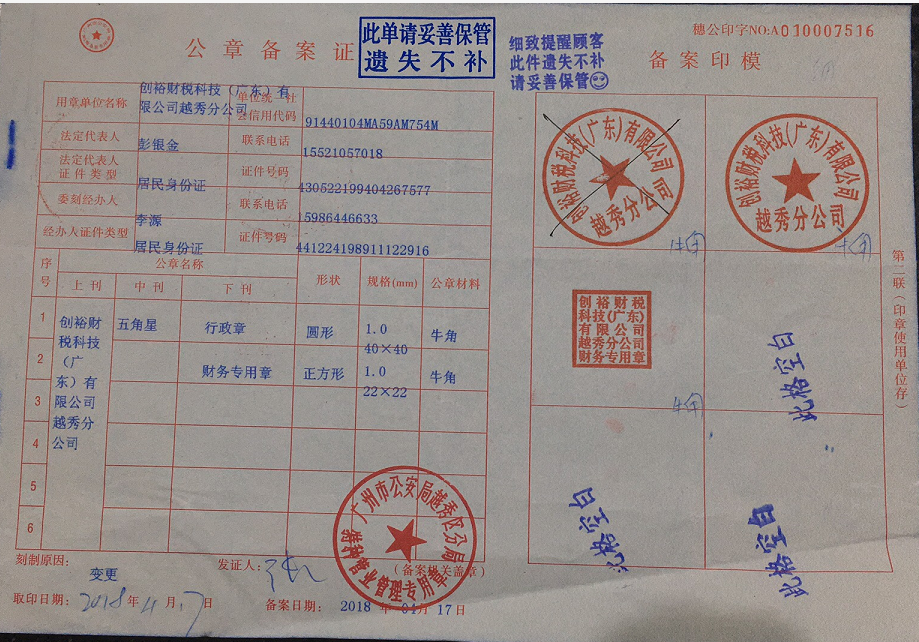 穗公印字NO:A010007516
公章备案证
此单请妥善保管
遗失不补
细致提醒顾客
此件遗失不补
请妥善保管
备案印模
用章单位名称
创裕财税科技(广东)有
限公司越秀分公司
单位统一社
会信用代码
91440104MA59AM754M
法定代表人
彭银金
联系电话
15521057018
法定代表人
证件类型
居民身份证
证件号码
430522199404267577
委刻经办人
李源
联系电话
15986446633
经办人证件类型
居民身份证
证件号码
441224198911122916
序号
公章名称
上刊
中刊
下刊
形状
规格(mm)
公章材料
1
创裕财
税科技
(广
东)有
限公司
越秀分
公司
五角星
行政章
圆形
1.0
40×40
牛角
2
财务专用章
正方形
1.0
22×22
牛角
3
4
5
6
刻制原因:
变更
发证人:
(备案机关盖章)
取印日期:2018年4月17日
备案日期:2018年04月17日
广州市公安局越秀区分局
特种行业管理专用章
创裕财税科技(广东)有限公司
越秀分公司
创裕财税科技(广东)有限公司
越秀分公司
牛角
牛角
创裕财税
科技(广东)
有限公司
越秀分公司
财务专用章
牛角
此格空白
此格空白
此格空白
第二联(印章使用单位存)